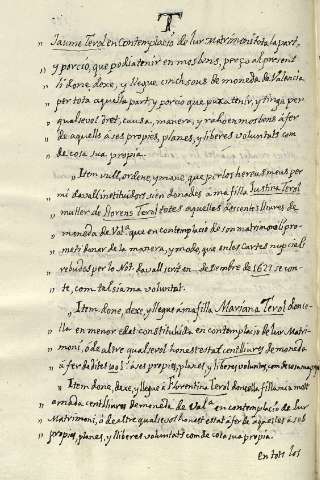 T
„ Jaume Terol en contemplació de lur Matrimoni tota la part,
„ y porció, que podia tenir en mos bens, per ço al present
„ li done, dexe, y llegue cinch sous de moneda de Valencia
„ per tota aquella part, y porcio que puxa tenir, y tinga per
„ qualsevol dret, causa, manera, y raho en mos bens á fer
„ de aquells á ses propies, planes, y liberes voluntats com
„ de cosa sua propia.
„ Item vull, ordene, y mane, que per los hereus meus per
„ mi davall instituidors sien donades á ma filla Justica Terol
„ muller de Llorens Terol totes aquelles descents lliures de
„ moneda de Valª que en contemplacio de son matrimoni li pro-
„ metí donar de la manera, y modo, que en les Cartes nupcials
„ rebudes per lo Not. davall scrit en .. de Dembre de 1621 se con-
„ te, com tal sia ma voluntat.
„ Item done, dexe, y llegue á ma filla Mariana Terol donce-
„ lla en menor edat constituhida en contemplacio de lur Matri-
„ moni, ó de altre qualsevol honest estat cent lliures de moneda
„ á fer de dites 100 l. á ses propies, planes, y liberes voluntats, com de cosa propia
„ Item done, dexe, y llegue á Florentina Terol donsella filla mia molt
„ amada cent lliures de moneda de Valª en contemplacio de lur
„ Matrimoni, ó de altre qualsevol honest estat á fer de aquelles á ses
„ propies, planes, y lliberes voluntats com de cosa sua propia.
En tots los